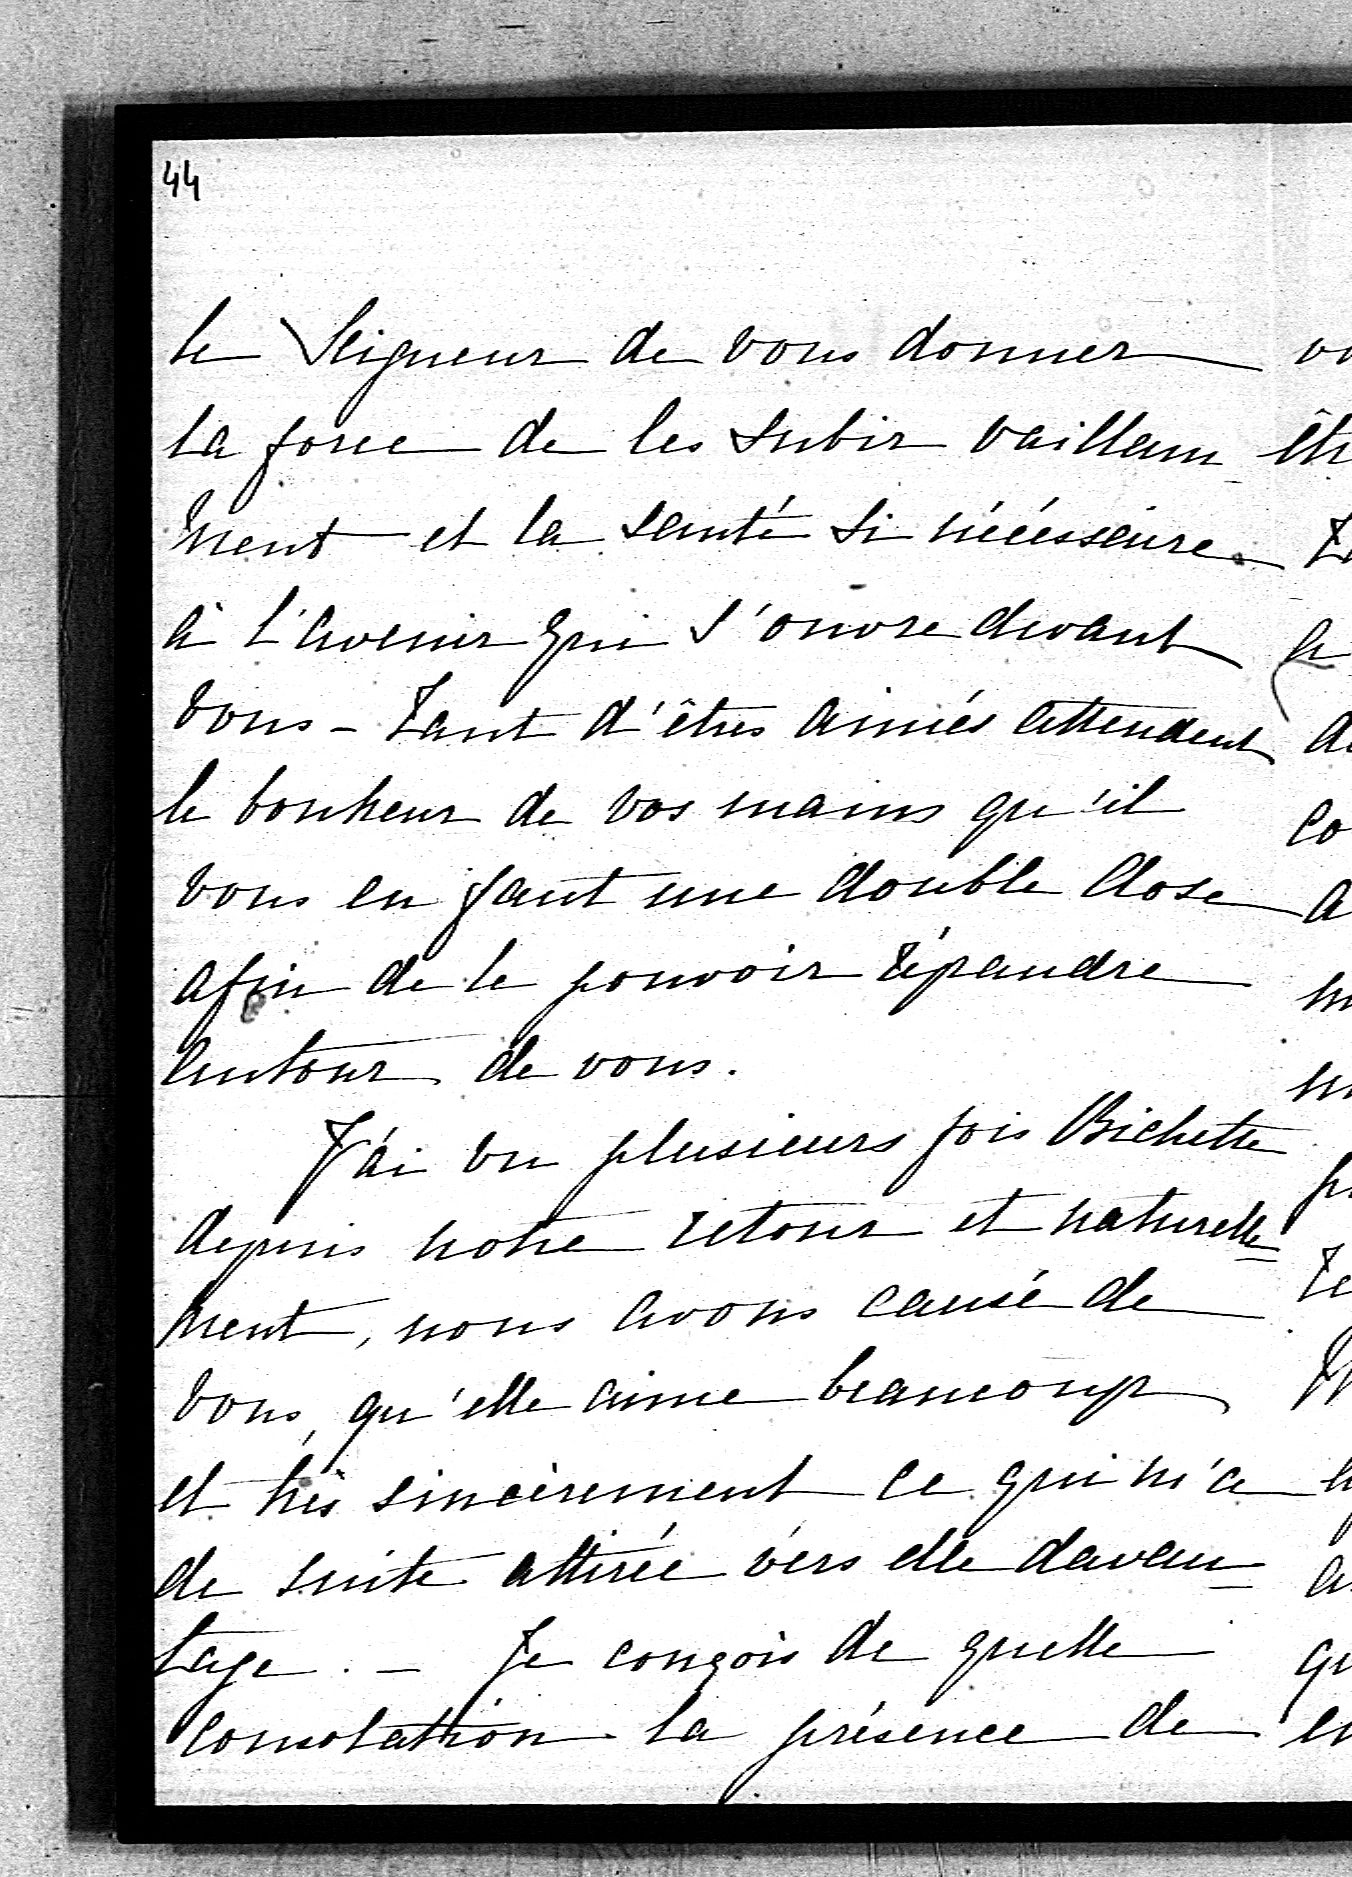 44
le Seigneur de vous donner
la force de les subir vaillam-
ment et la santé si nécéssaire
à l'avenir qui s'ouvre devant
vous - Tant d'êtres aimés attendent
le bonheur de vos mains qu'il
vous en faut une double dose
afin de le pouvoir répandre
autour de vous.
J'ai vu plusieurs fois Bichette
depuis notre retour et naturelle=
ment, nous avons causé de
vous, qu'elle aime beaucoup
et très sincèrement ce qui m'a
de suite attirée vers elle davan=
tage. - Je conçois de quelle
consolation la présence de